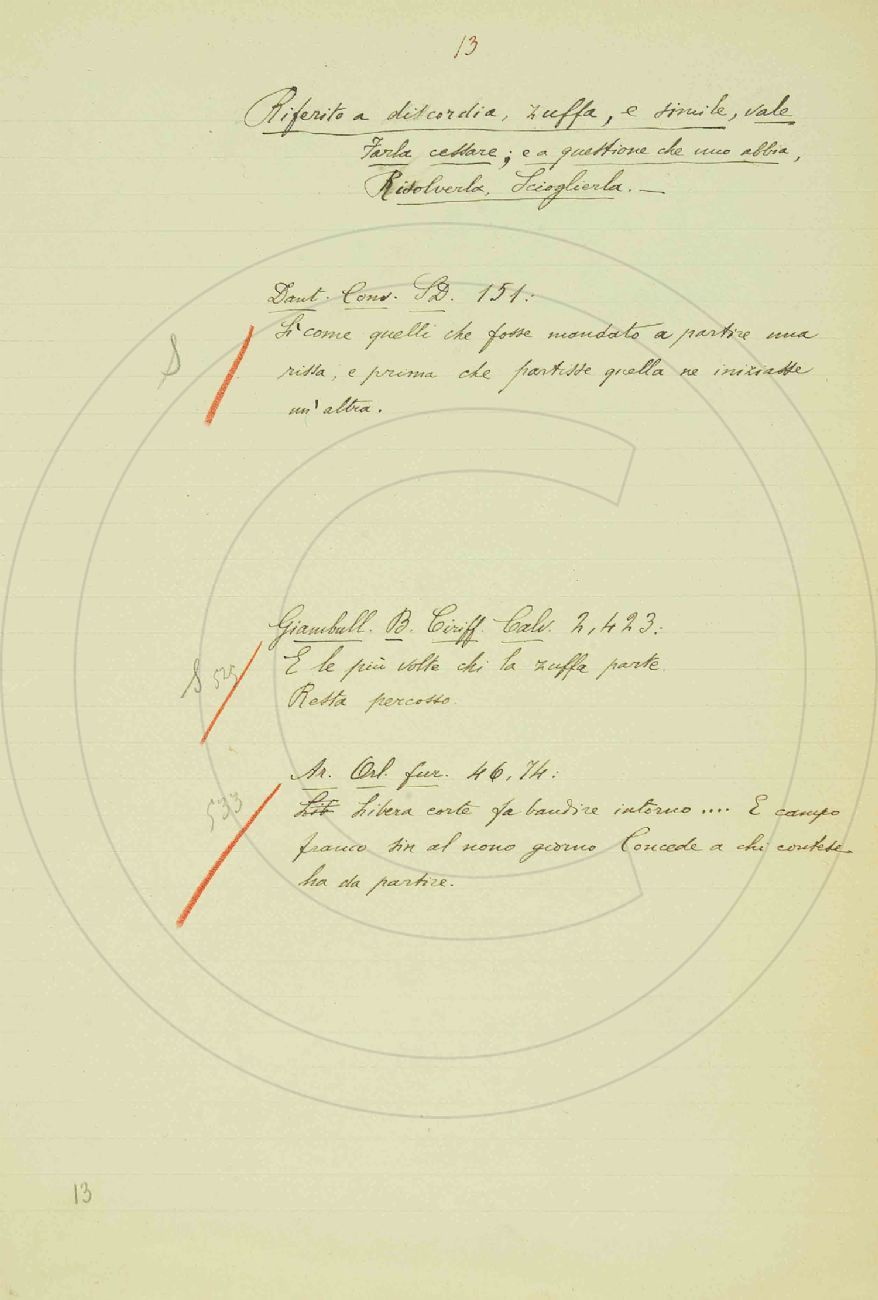 13
Riferito a discordia, zuffa, e simile, vale
Farla cessare; e a questione che uno abbia,
Risolverla, Scioglierla. —
Dant. Conv. SD. 151:
Sì come quelli che fosse mandato a partire una
S
rissa, e prima che partisse quella ne iniziasse
un' altra.
Giambull. B. Ciriff. Calv. 2, 423:
E le più volte chi la zuffa parte
S 525
Resta percosso.
Ar. Orl. fur. 46, 74:
533
Lib Libera corte fa bandire intorno .... E campo
franco sin al nono giorno Concede a chi contese
ha da partire.
13